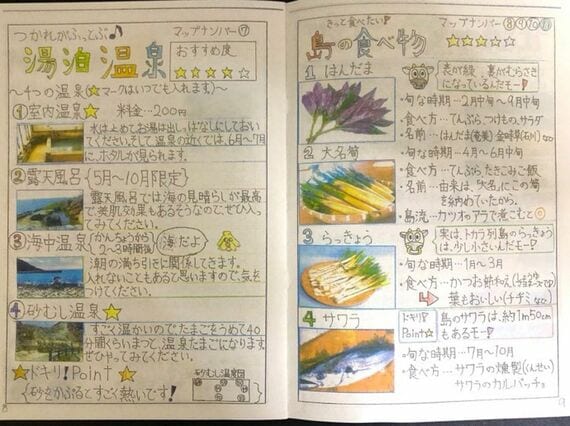 つかれがふっとぶ♪
マップナンバー⑦
湯泊温泉
おすすめ度
★★★★☆
〜4つの温泉(★マークはいつでも入れます)〜
①室内温泉★ 料金…200円
水はよめてお湯は出しっぱなしにしておい
てください。そして温泉の近くでは、6月〜7月
に、ホタルが見られます。
②露天風呂{5月〜10月限定}
露天風呂では海の見晴らしが最高
で、美肌効果もあるそうなので、ぜひ入っ
てみてください。
③海中温泉(かんちょうから2〜3時間後)(海だよ)
潮の満ち引きに関係してきます。
入れないこともあると思いますので、気を
つけてください。
④砂むし温泉★
すごく温かいので、たまごをうめて40
分間くらいまつと、温泉たまごになります。
ぜひやってみてください。
★ドキリ!Point★
{砂をかぶるとすごく熱いです!
砂むし温泉図
8
きっと食べたい!
マップナンバー⑧⑨⑩⑪
島の食べ物
★★★★☆
1 はんだま
表が緑、裏がむらさき
になっているんだモー!
・旬な時期…2月中旬〜9月中旬
・食べ方…てんぷら、つけもの、サラダ
・名前…はんだま(奄美)金時草(石川)など
2 大名筍
・旬な時期…4月〜6月中旬
・食べ方…てんぷら たきこみご飯
・名前…由来は、"大名"にこの筍
を納めていたから。
・島流…カツオのアラで煮こむと◎
3 らっきょう
実は、トカラ列島のらっきょう
は、少し小さいんだモー!
・旬な時期…1月〜3月
・食べ方…かつお節和え
葉もおいしい(チヂミなど)
4 サワラ
ドキリ!
Point★
島のサワラは、約1m50cm
もあるモー!
・旬な時期…7月〜10月
・食べ方…サワラの燻製(くんせい)
サワラのカルパッチョ
9